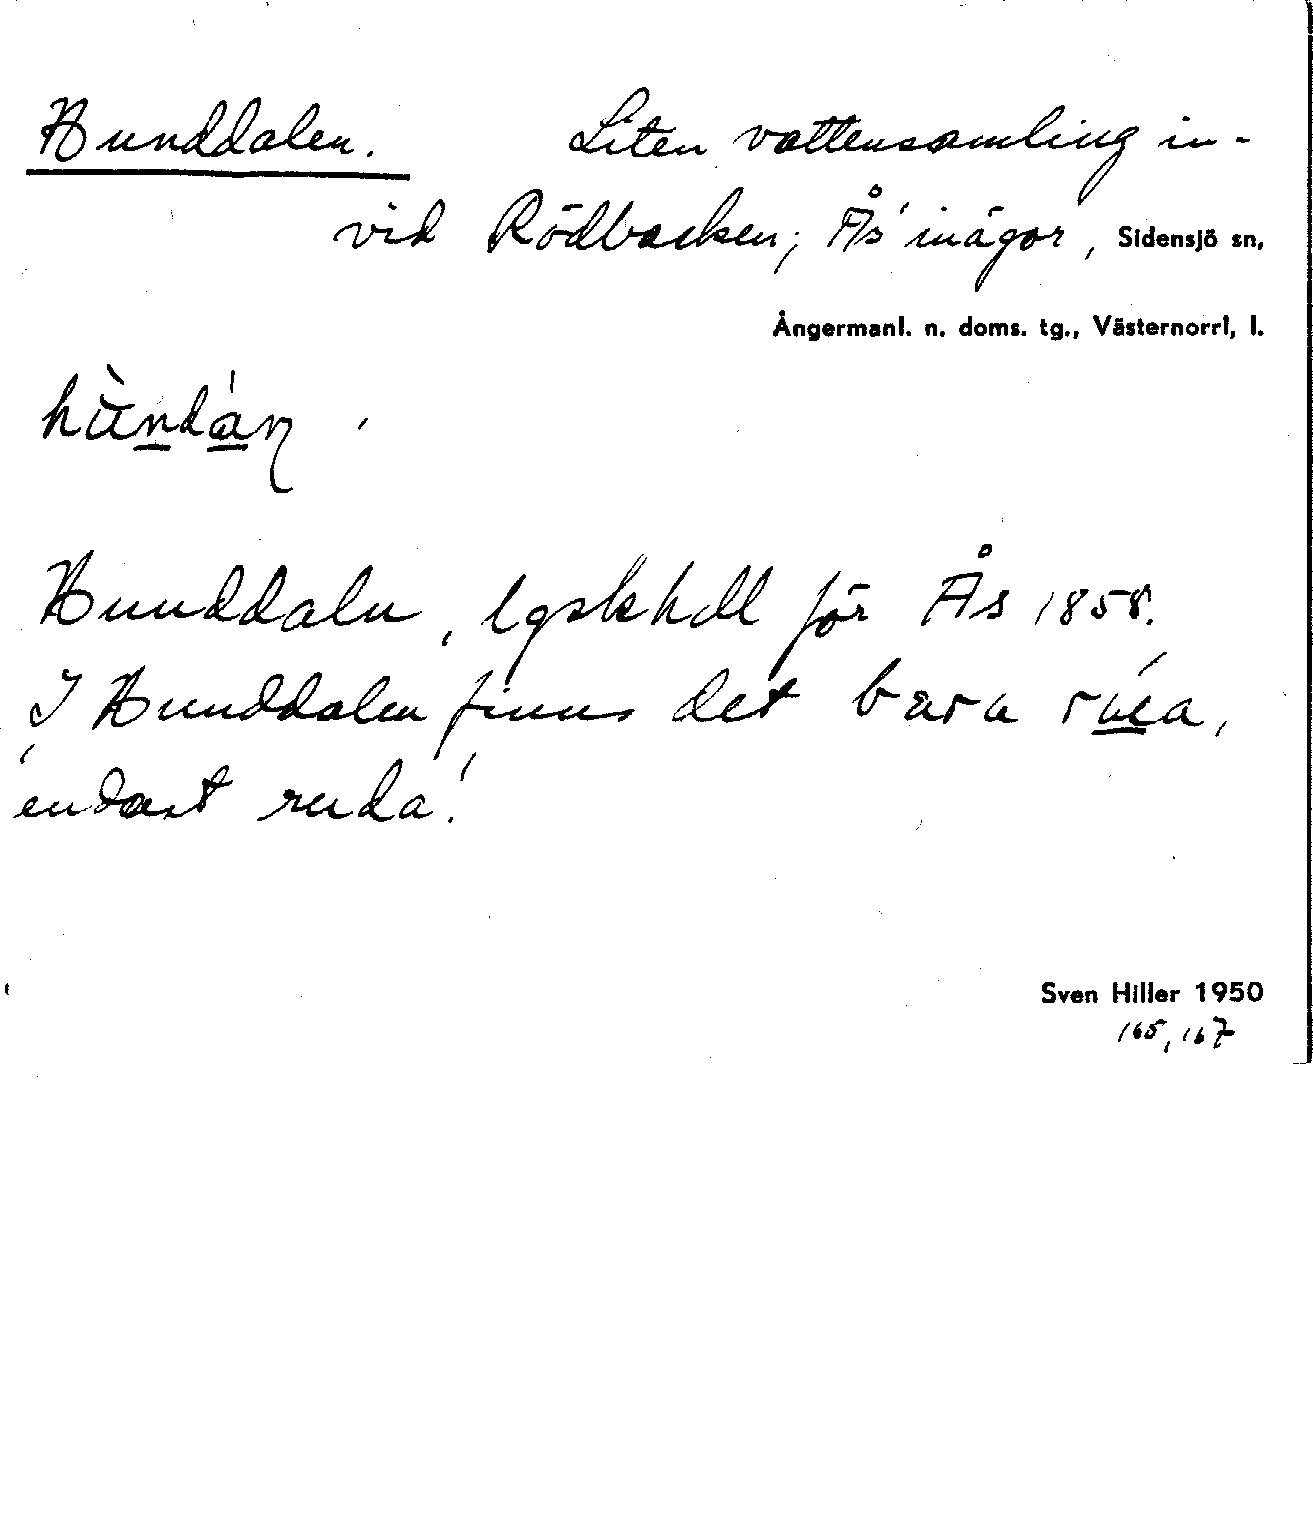 Hunddalen. Liten vattensamling in-
vid Rödbacken; Ås' inägor, Sidensjö sn,
Ångermanl. n. doms. tg., Västernorrl, l.
Hunddaln, lgskhdl för Ås 1858.
I Hunddalen finns det bara
'endast ruda'.
Sven Hiller 1950
165, 167